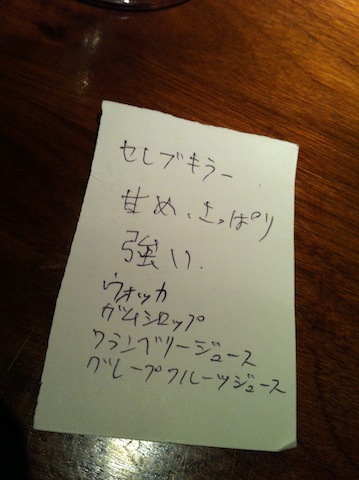 セレブキラー
甘め、さっぱり
強い.
ウォッカ
ガムシロップ
クランベリージュース
グレープフルーツジュース